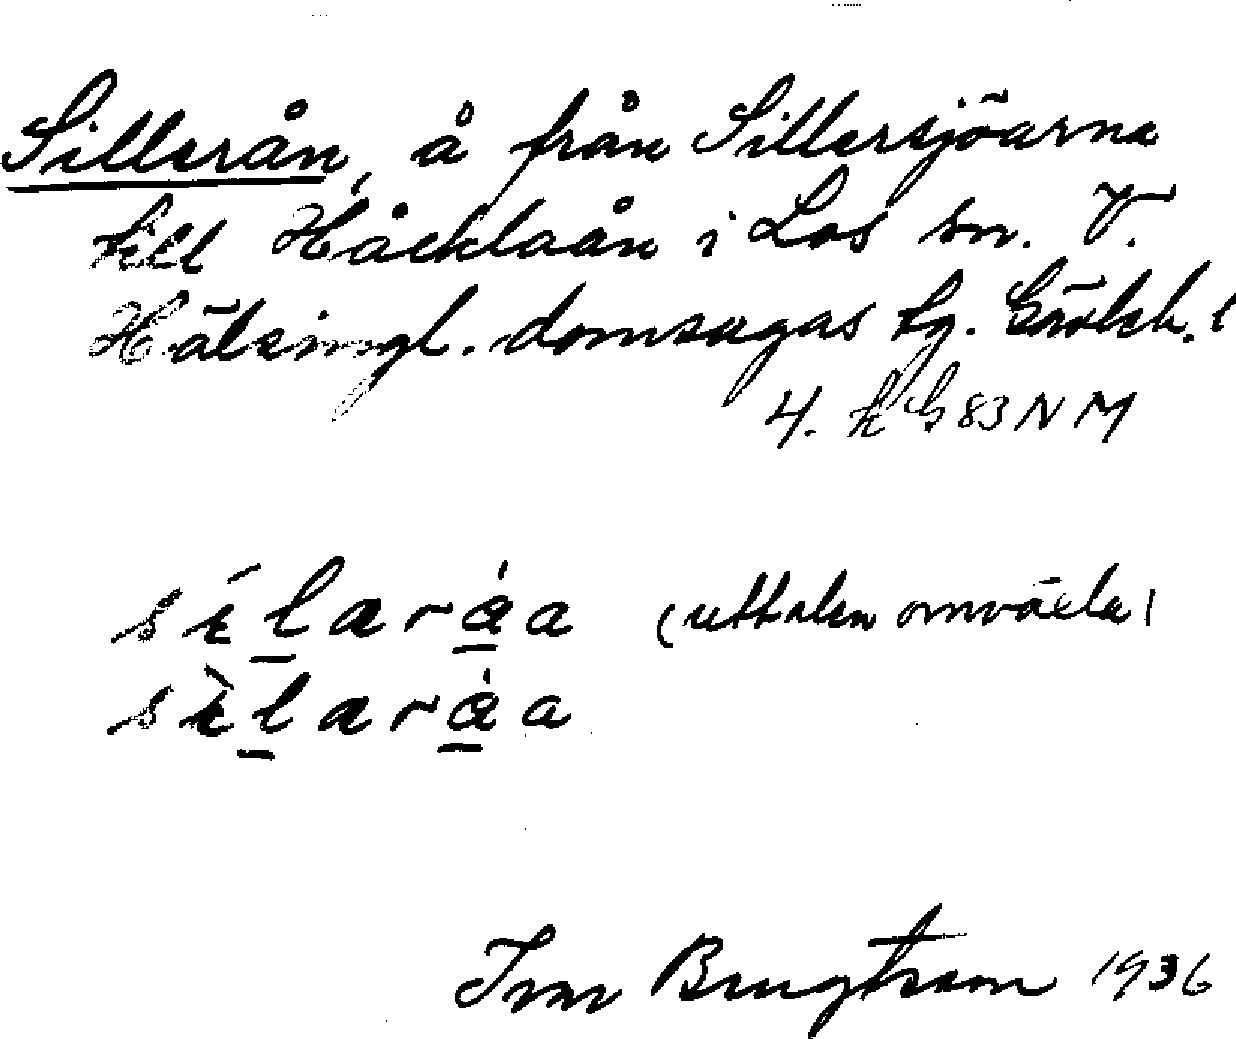 Sillerån, å från Sillersjöarna
till Håcklaån i Los sn. V.
Hälsingl. domsagas tg. Gävleb. l
4. k G 83 N M
sílaråa (uttalen omväxla)
sìlaråa
Bengtsson 1936